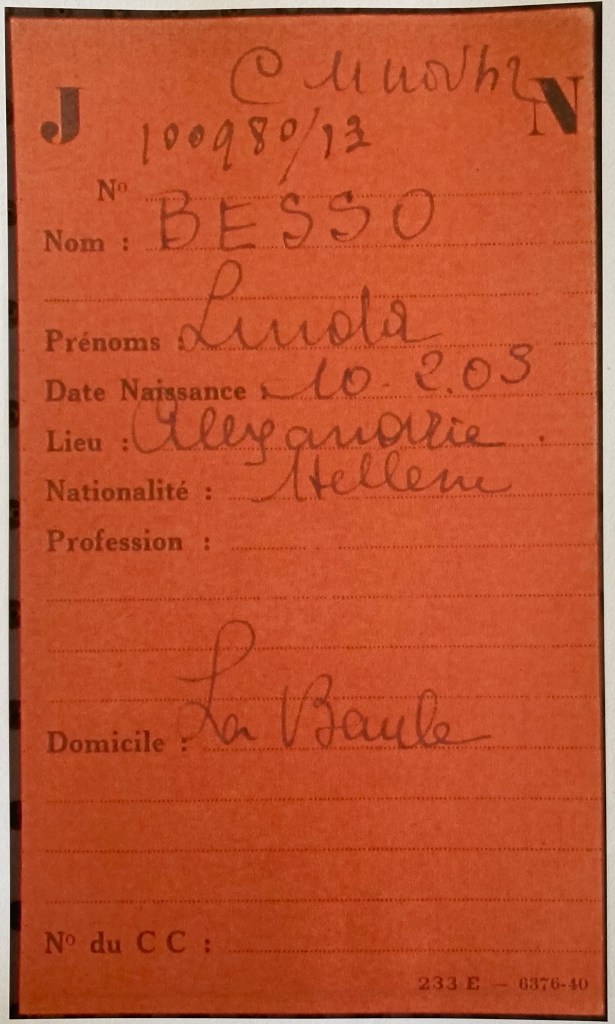 C 11 nov 42
J N
100980/13
Nº
Nom : BESSO
Prénoms : Linda
Date Naissance : 10. 2. 09
Lieu : Alexandrie.
Nationalité : Hellene
Profession :
Domicile : La Baule
Nº du C C :
233 E — 6376-40